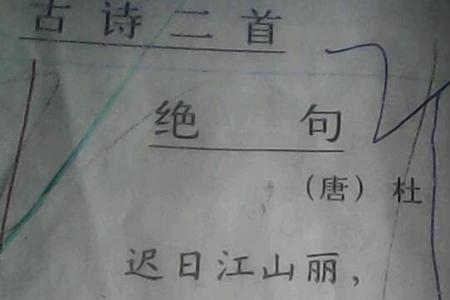 古诗二首
绝句
（唐）杜
迟日江山丽，